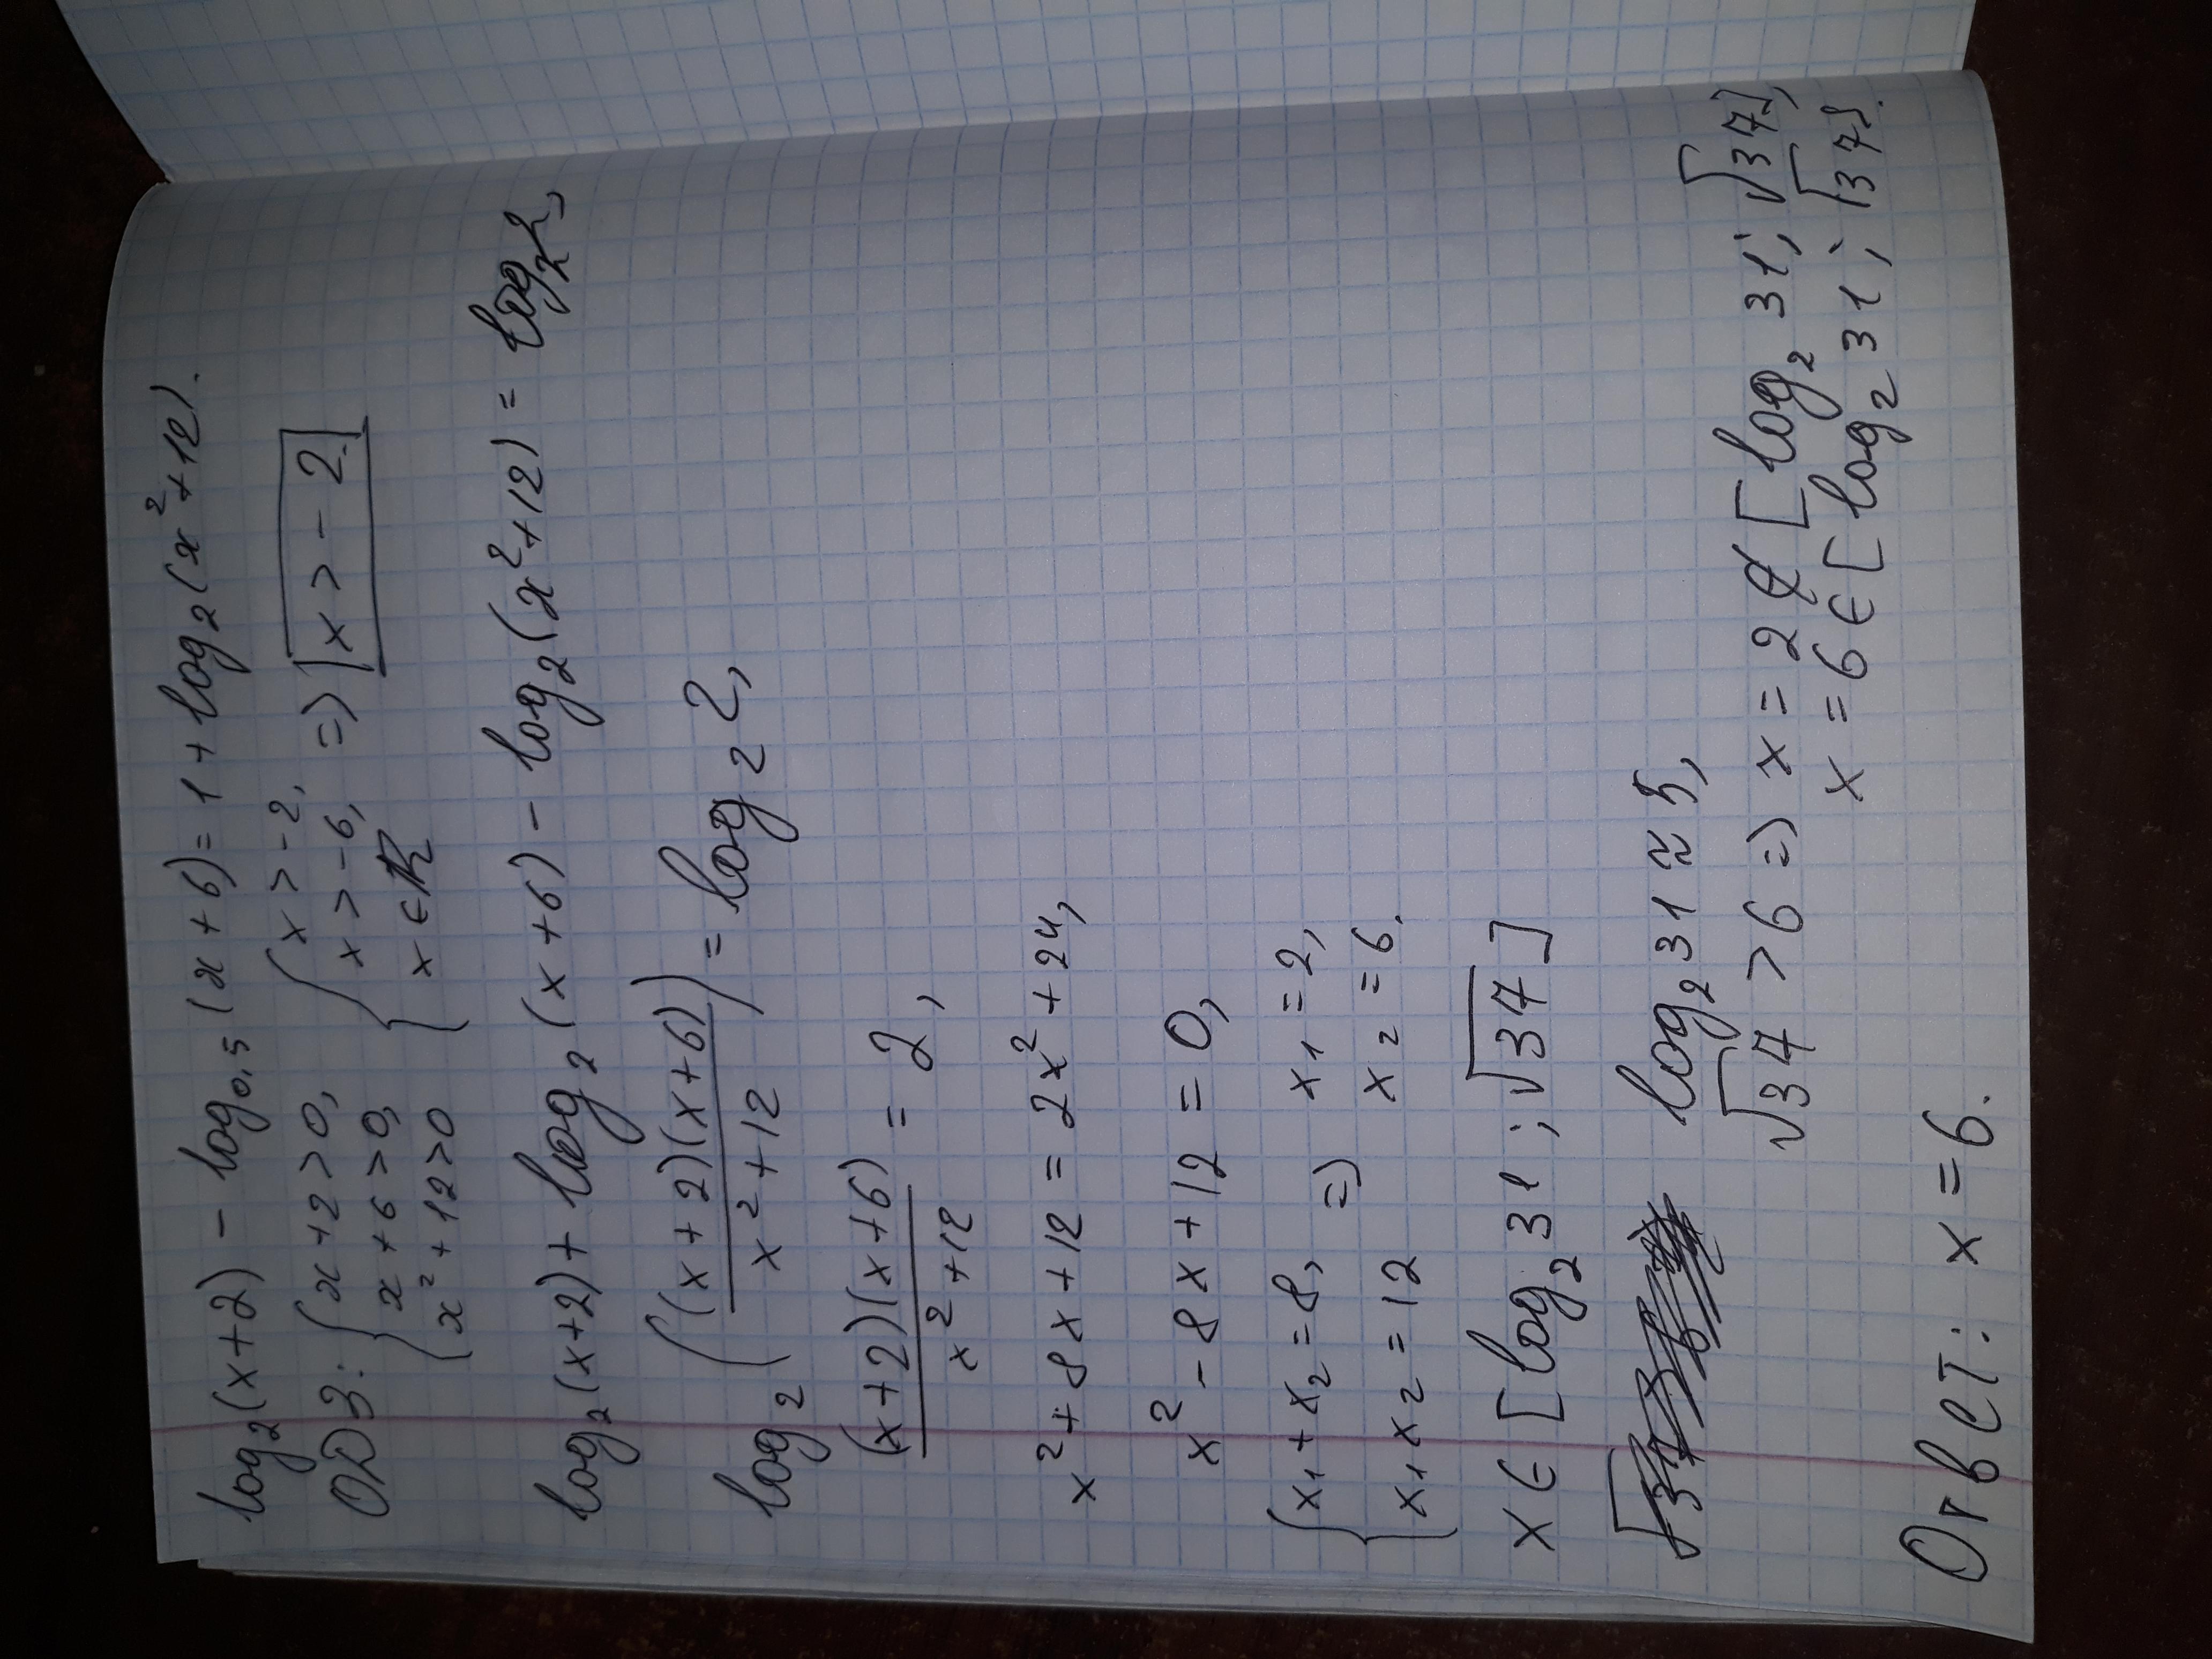 log₂(x+2) - log₀,₅(x+6) = 1 + log₂(x²+12).
ОДЗ: { x+2>0, { x>-2,
x+6>0, x>-6, => [x>-2]
x²+12>0 x∈R
log₂(x+2) + log₂(x+6) - log₂(x²+12) = log₂2,
log₂((x+2)(x+6)/(x²+12)) = log₂2,
(x+2)(x+6)/(x²+12) = 2,
x²+8x+12 = 2x²+24,
x²-8x+12 = 0,
{ x₁+x₂=8, => x₁=2,
x₁x₂=12 x₂=6.
x∈[log₂31; √37]
log₂31≈5,
√37>6 => x=2∉[log₂31; √37],
x=6∈[log₂31; √37].
Ответ: x=6.